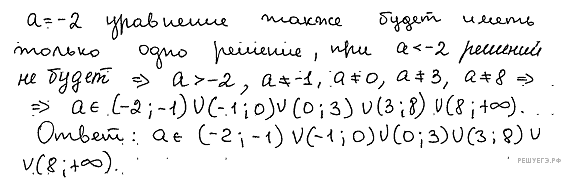 a=-2 уравнение также будет иметь
только одно решение, при a<-2 решений
не будет ⇒ a>-2, a≠-1, a≠0, a≠3, a≠8 ⇒
⇒ a∈(-2;-1)∪(-1;0)∪(0;3)∪(3;8)∪(8;+∞).
Ответ: a∈(-2;-1)∪(-1;0)∪(0;3)∪(3;8)∪
∪(8;+∞).
РЕШУЕГЭ.РФ